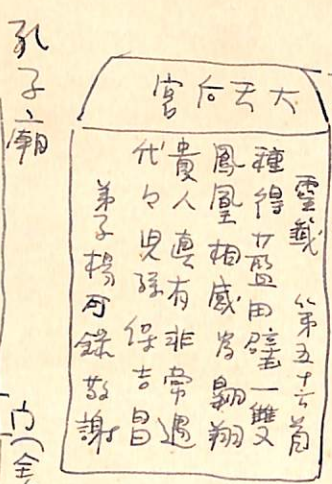 大天后宮
靈籤 第五十六首
種得藍田璧一雙
鳳凰相感為翱翔
貴人真有非常遇
代々児孫保吉昌
弟子楊可錄敬謝
孔子廟